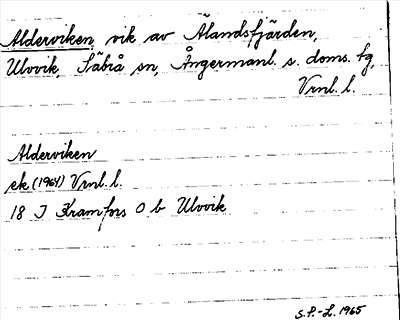 Alderviken, vik av Ålandsfjärden,
Ulvvik, Säbrå sn, Ångermanl. s. doms. tg,
Vrnl. l.
Alderviken
ek (1964) Vrnl. l.
18 J Kramfors O b Ulvvik
S.P.-L. 1965